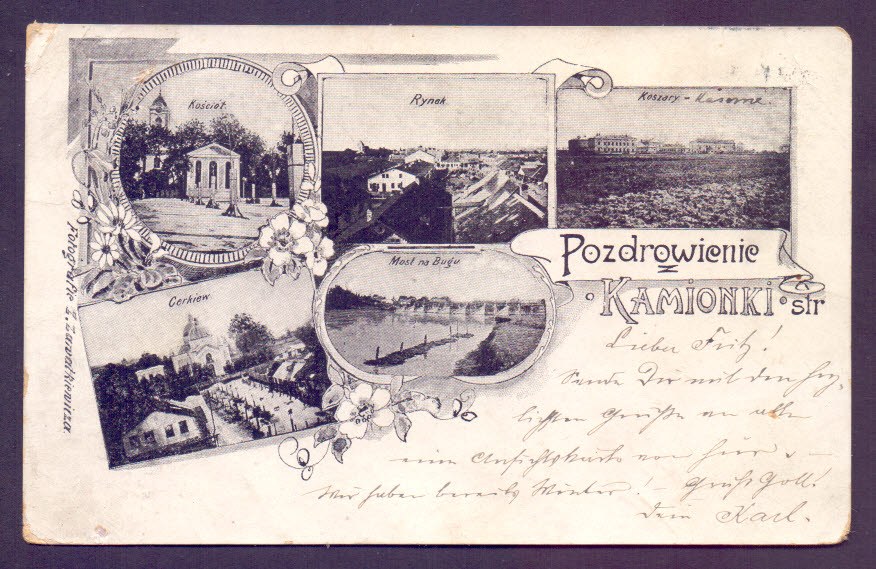 Kościoł.
Rynek.
Koszary - Kaserne.
Pozdrowienie
z
KAMIONKI str
Cerkiew
Most na Bugu
Lieber Fritz!
Sende Dir mit den herz-
lichsten Grüße an alle
eine Ansichtskarte von hier. -
Wir haben bereits Winter! - Grüß Gott!
Dein Karl.
Fotografje